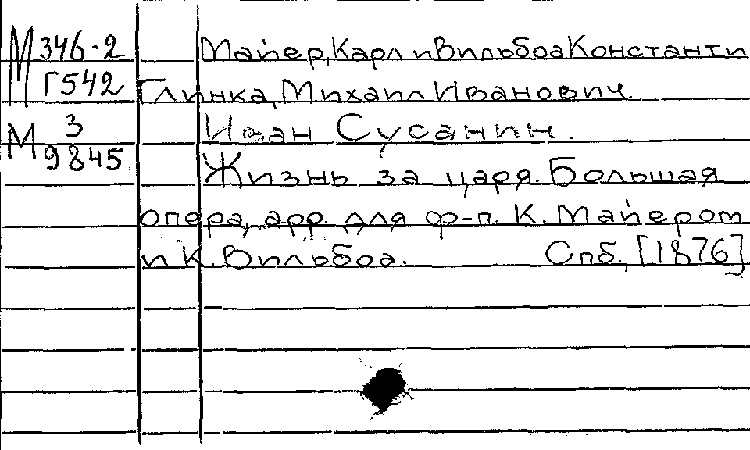 М 346-2 Майер, Карл и Вильбоа Константи
Г542 Глинка, Михаил Иванович.
М 3 Иван Сусанин.
9845 Жизнь за царя. Большая
опера, арр. для ф-п. К. Майером
и К. Вильбоа. Спб, [1876]